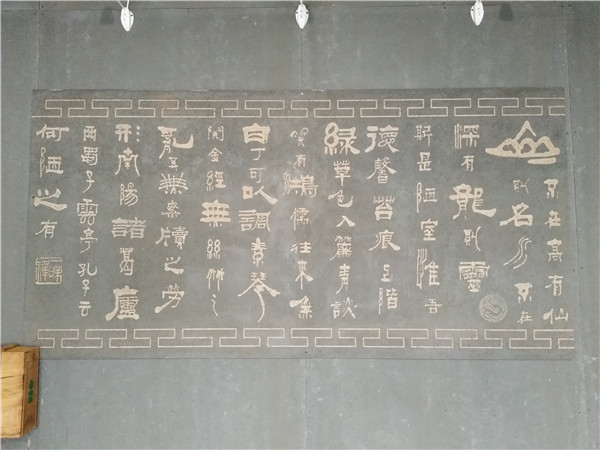 山不在高有仙
則名水不在
深有龍則靈
斯是陋室惟吾
德馨苔痕上階
綠草色入簾青談
笑有鴻儒往來無
白丁可以調素琴
閱金經無絲竹之
亂耳無案牘之勞
形南陽諸葛廬
西蜀子雲亭孔子云
何陋之有